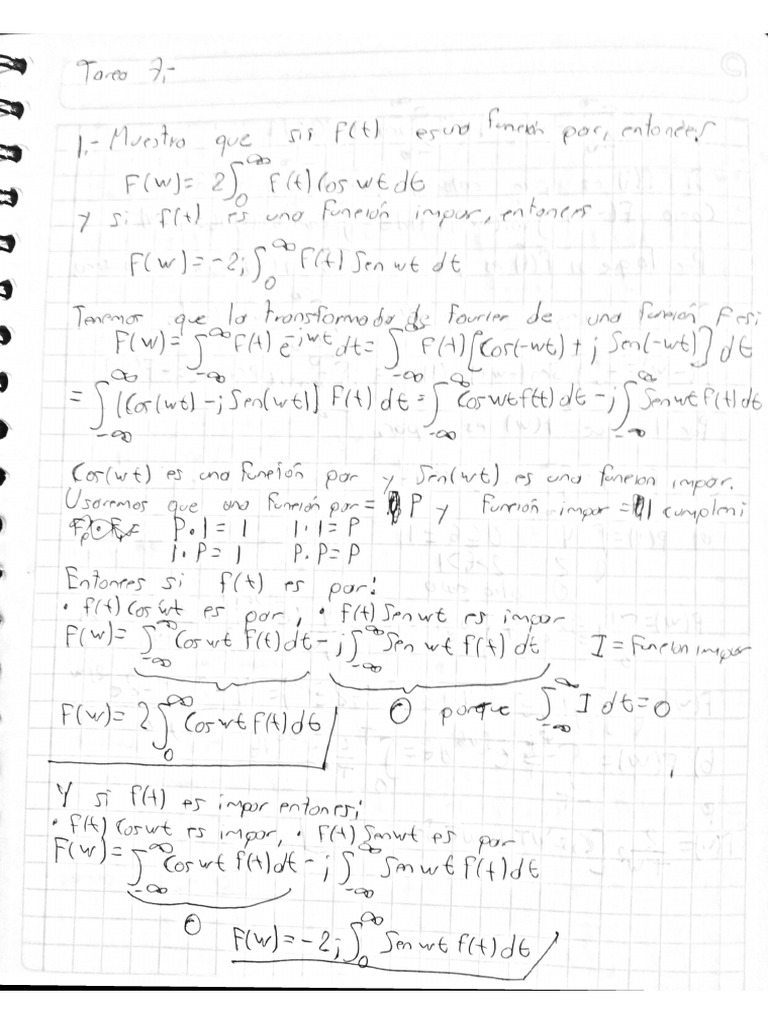 Tarea 7.-
1.- Muestra que sis f(t) es una función par, entonces
F(w)= 2∫₀^∞ f(t) Cos wt dt
Y si f(t) es una función impar, entonces
F(w)= -2j ∫₀^∞ f(t) Sen wt dt
Tenemos que la transformada de Fourier de una función F es:
F(w)= ∫_{-∞}^{∞} f(t) e^{-jwt} dt= ∫_{-∞}^{∞} f(t) [Cos(-wt) + j Sen(-wt)] dt
= ∫_{-∞}^{∞} [Cos(wt) - j Sen(wt)] f(t) dt = ∫_{-∞}^{∞} Cos wt f(t) dt - j ∫_{-∞}^{∞} Sen wt f(t) dt
Cos(wt) es una función par y Sen(wt) es una función impar.
Usaremos que una función par = P y función impar = 1 cumplen:
P·1 = 1 1·1 = P
1·P = 1 P·P = P
Entonces si f(t) es par:
• f(t) Cos wt es par, • f(t) Sen wt es impar
F(w)= ∫_{-∞}^{∞} Cos wt f(t) dt - j ∫_{-∞}^{∞} Sen wt f(t) dt I = Función impar
F(w)= 2∫₀^∞ Cos wt f(t) dt 0 porque ∫_{-∞}^{∞} I dt = 0
Y si f(t) es impar entonces:
• f(t) Cos wt es impar, • f(t) Sen wt es par
F(w)= ∫_{-∞}^{∞} Cos wt f(t) dt - j ∫_{-∞}^{∞} Sen wt f(t) dt
0
F(w)= -2j ∫₀^∞ Sen wt f(t) dt